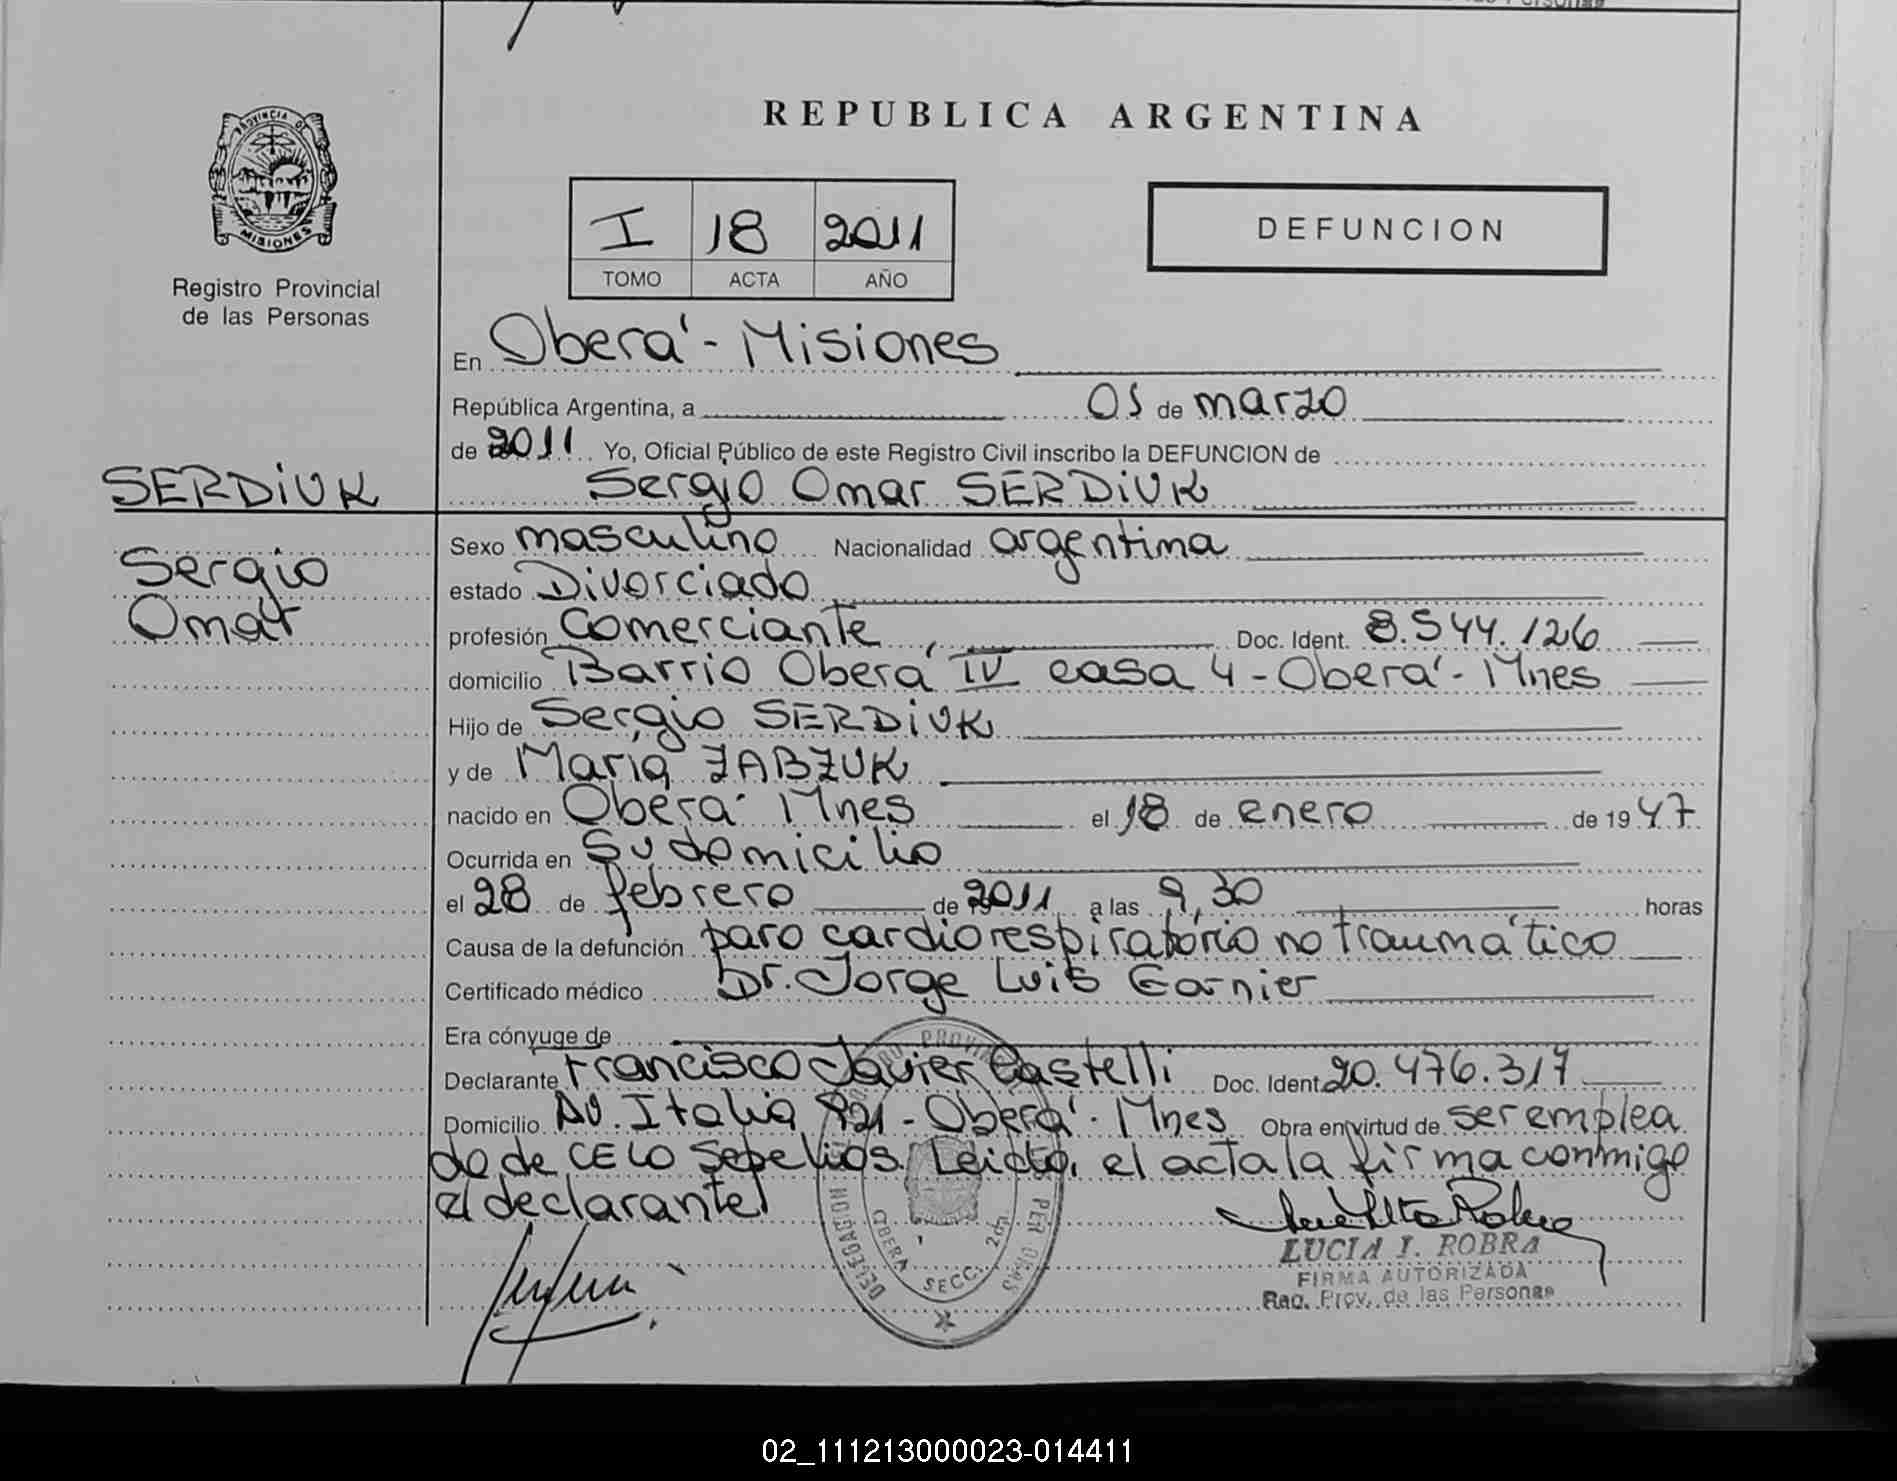 REPUBLICA ARGENTINA
PROVINCIA DE
MISIONES
Registro Provincial
de las Personas
I 18 2011
TOMO ACTA AÑO
DEFUNCION
En Oberá - Misiones
República Argentina, a 01 de marzo
de 2011 Yo, Oficial Público de este Registro Civil inscribo la DEFUNCION de
SERDiUK
Sergio Omar SERDiUK
Sergio
Omar
Sexo masculino Nacionalidad argentina
estado Divorciado
profesión Comerciante, Doc. Ident. 8.544.126
domicilio Barrio Oberá IV casa 4 - Oberá - Mnes
Hijo de Sergio SERDiUK
y de María ZABZUK
nacido en Oberá - Mnes el 18 de enero de 1947
Ocurrida en Su domicilio
el 28 de febrero de 2011 a las 9,30 horas
Causa de la defunción paro cardiorespiratorio no traumático
Certificado médico Dr. Jorge Luis Garnier
Era cónyuge de
Declarante Francisco Javier Castelli Doc. Ident 20.476.317
Domicilio AV. Italia 921 - Oberá - Mnes Obra en virtud de ser emplea
do de CELO Sepelios. Leída, el acta la firma conmigo
el declarante
LUCIA I. ROBRA
FIRMA AUTORIZADA
Reg. Prov. de las Personas
DELEGACION
OBERA SECC. 2da
02_111213000023-014411